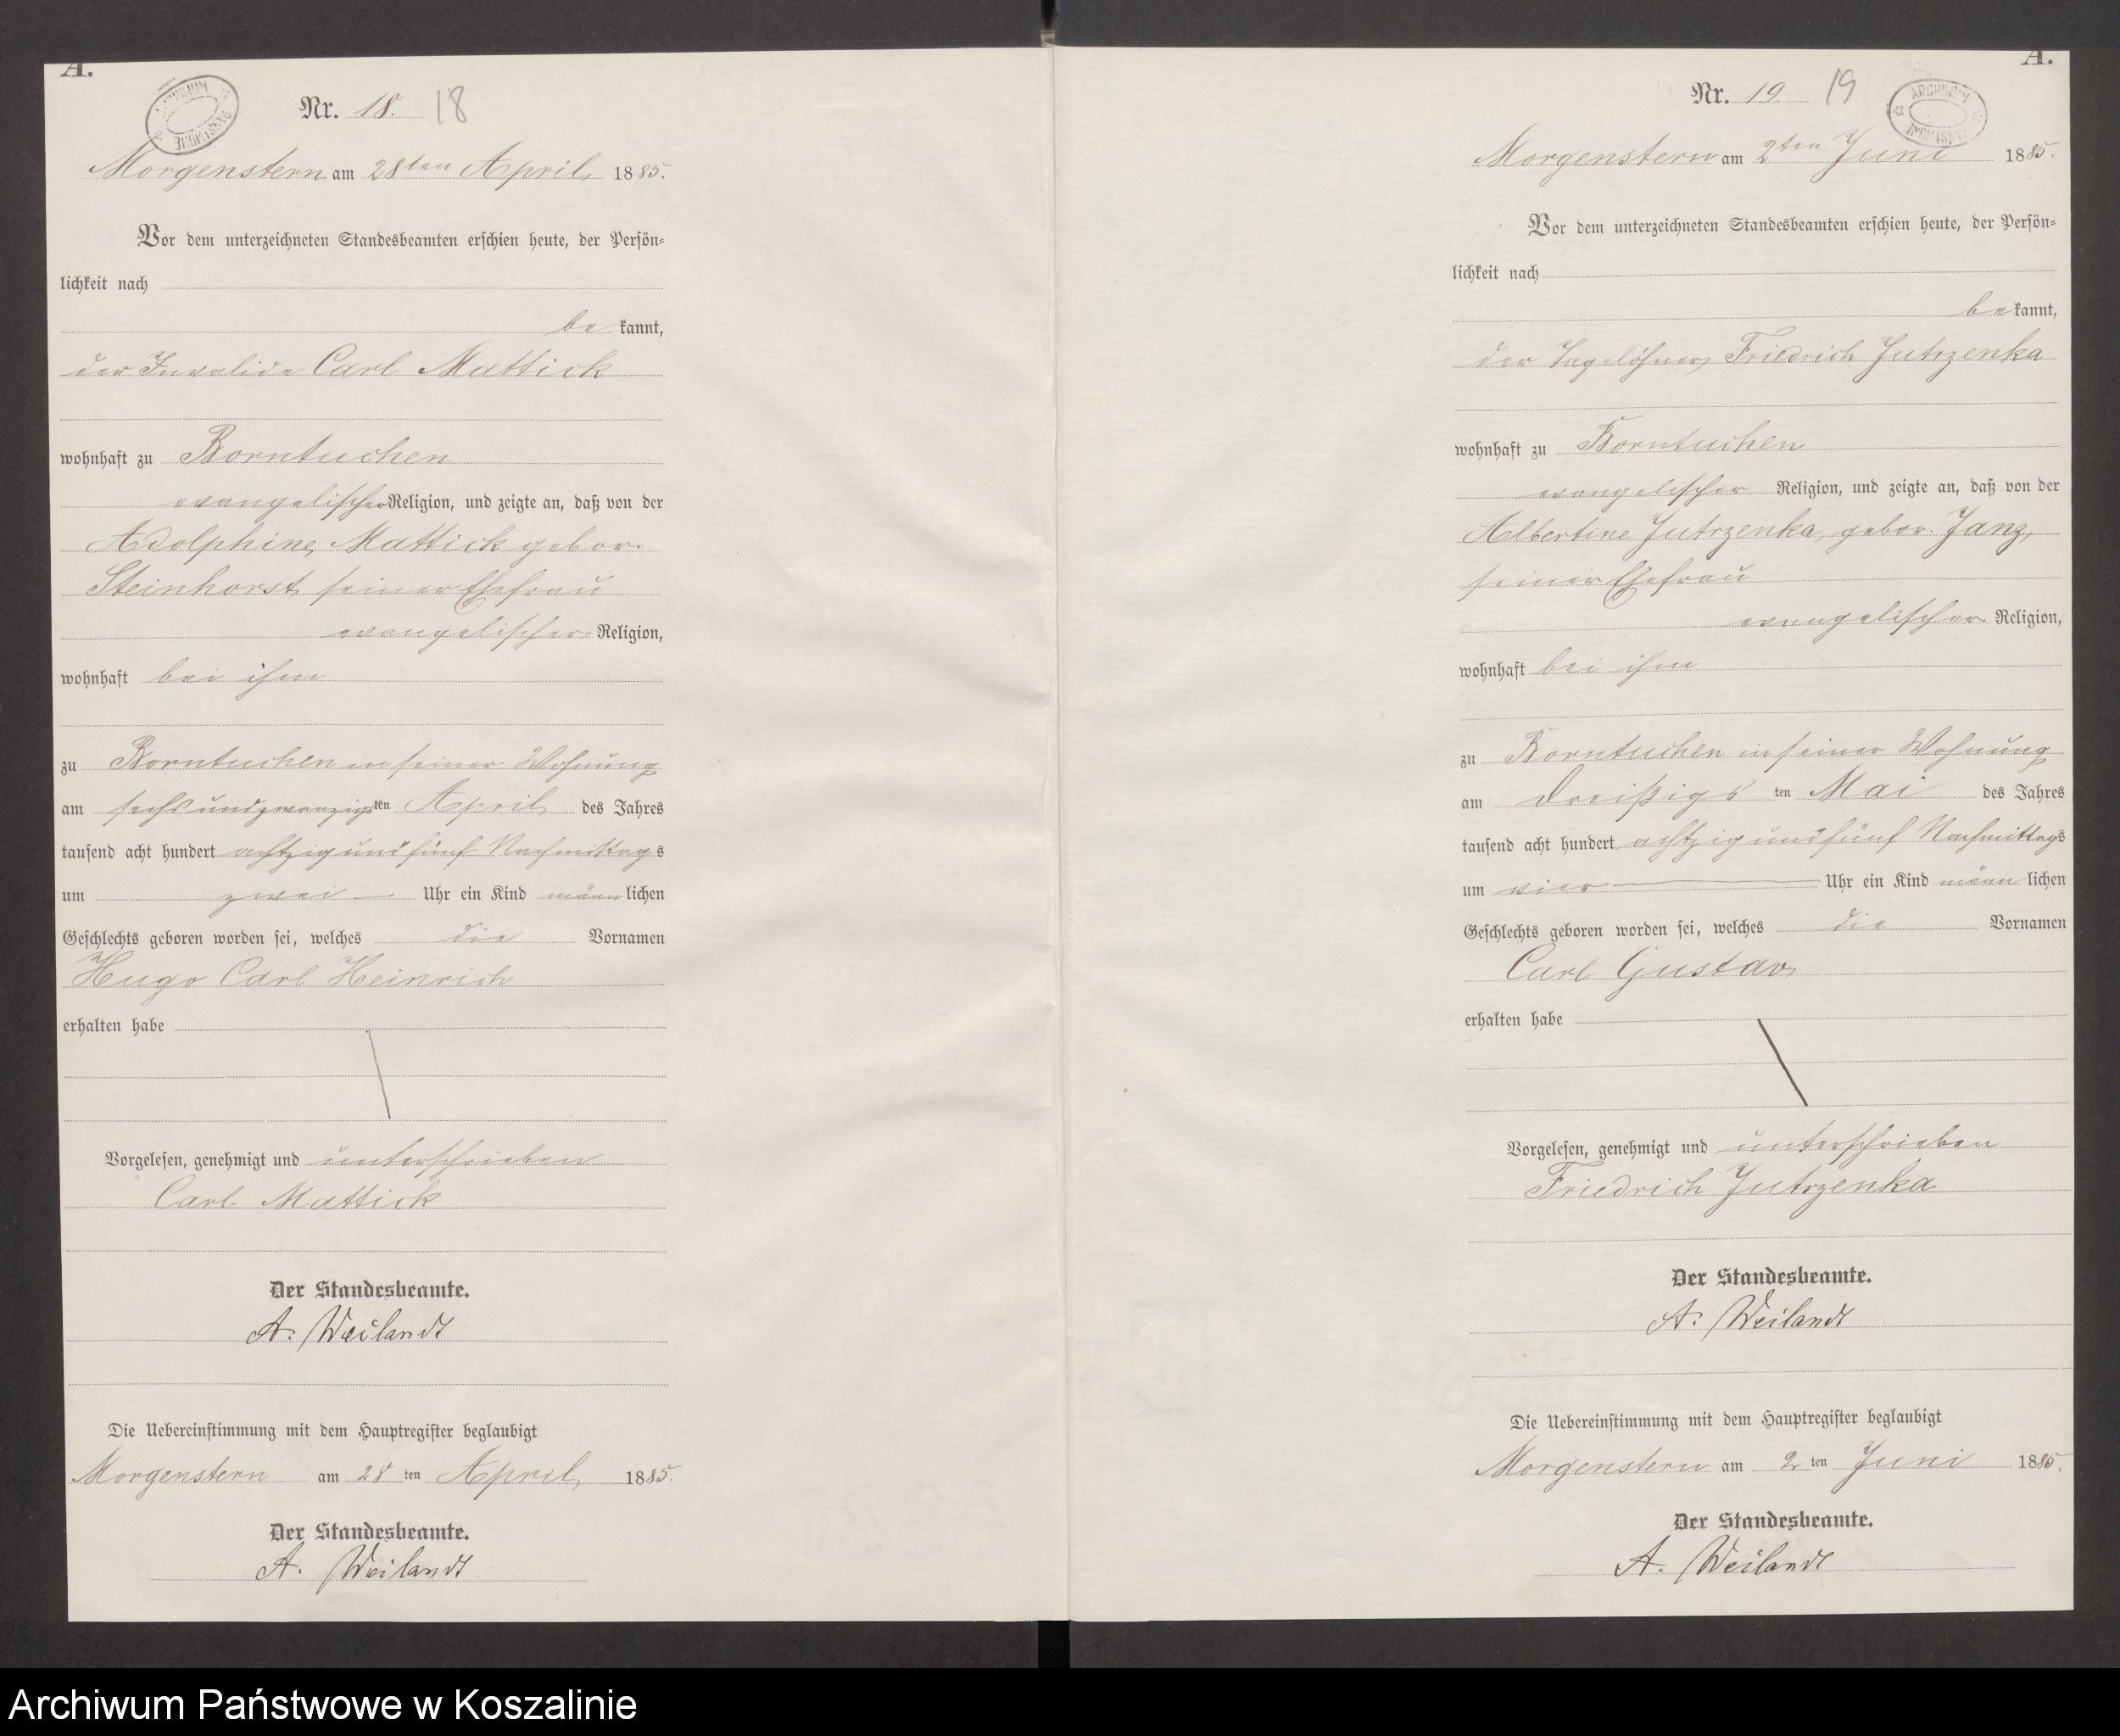 A.
ARCHIWUM PAŃSTWOWE
Nr. 18. 18
Morgenstern am 28ten April 1885.
Vor dem unterzeichneten Standesbeamten erschien heute, der Persön-
lichkeit nach
be kannt,
der Invalide Carl Mattick
wohnhaft zu Borntuchen
evangelischer Religion, und zeigte an, daß von der
Adolphine Mattick gebor.
Steinhorst seiner Ehefrau
evangelischer Religion,
wohnhaft bei ihm
zu Borntuchen in seiner Wohnung
am sechsundzwanzigsten April des Jahres
tausend acht hundert achtzig und fünf Nachmittags
um zwei Uhr ein Kind männlichen
Geschlechts geboren worden sei, welches die Vornamen
Hugo Carl Heinrich
erhalten habe
Vorgelesen, genehmigt und unterschrieben
Carl Mattick
Der Standesbeamte.
A. Weilandt
Die Uebereinstimmung mit dem Hauptregister beglaubigt
Morgenstern am 28 ten April 1885.
Der Standesbeamte.
A. Weilandt
A.
Nr. 19. 19
ARCHIWUM PAŃSTWOWE
Morgenstern am 2ten Juni 1885.
Vor dem unterzeichneten Standesbeamten erschien heute, der Persön-
lichkeit nach
be kannt,
der Tagelöhner Friedrich Jutrzenka
wohnhaft zu Borntuchen
evangelischer Religion, und zeigte an, daß von der
Albertine Jutrzenka, gebor. Janz,
seiner Ehefrau
evangelischer Religion,
wohnhaft bei ihm
zu Borntuchen in seiner Wohnung
am Dreißigs ten Mai des Jahres
tausend acht hundert achtzig und fünf Nachmittags
um vier Uhr ein Kind männlichen
Geschlechts geboren worden sei, welches die Vornamen
Carl Gustav
erhalten habe
Vorgelesen, genehmigt und unterschrieben
Friedrich Jutrzenka
Der Standesbeamte.
A. Weilandt
Die Uebereinstimmung mit dem Hauptregister beglaubigt
Morgenstern am 2 ten Juni 1885.
Der Standesbeamte.
A. Weilandt
Archiwum Państwowe w Koszalinie